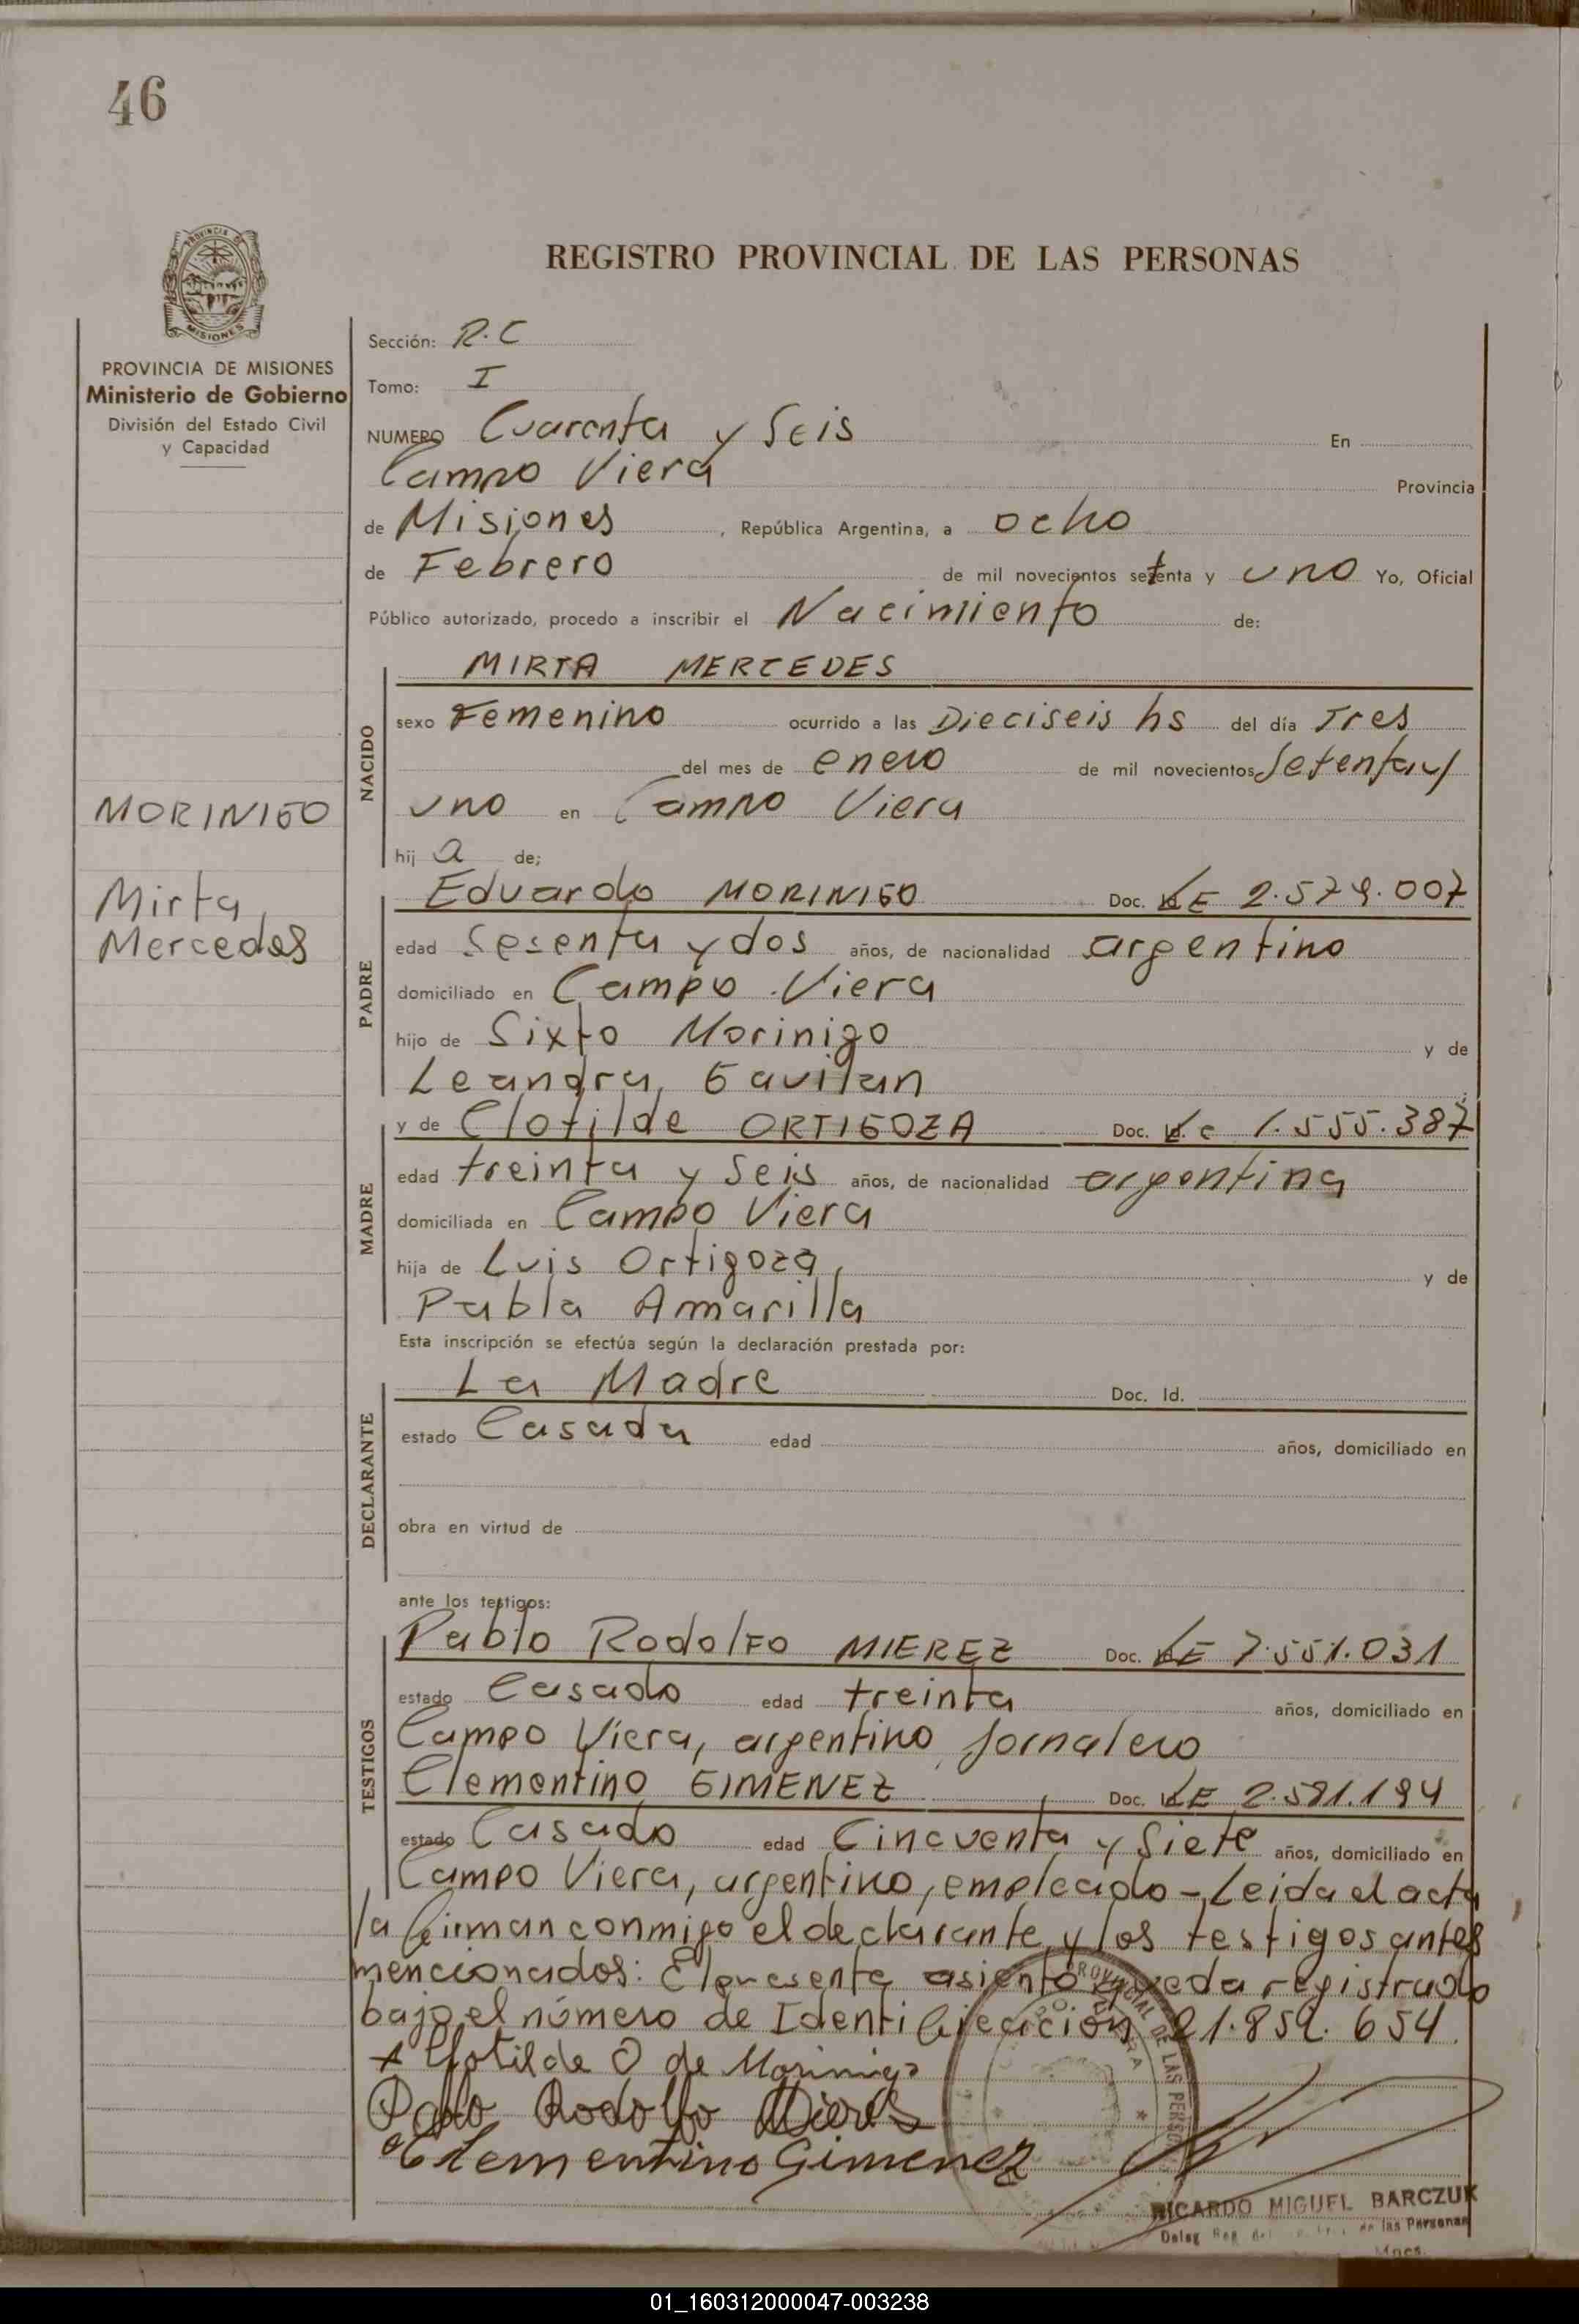 46
REGISTRO PROVINCIAL DE LAS PERSONAS
PROVINCIA DE
MISIONES
PROVINCIA DE MISIONES
Ministerio de Gobierno
División del Estado Civil
y Capacidad
MORINIGO
Mirta
Mercedes
Sección: R.C
Tomo: I
NUMERO Cuarenta y Seis En
Campo Viera Provincia
de Misiones, República Argentina, a ocho
de Febrero de mil novecientos setenta y uno Yo, Oficial
Público autorizado, procedo a inscribir el Nacimiento de:
NACIDO
MIRTA MERCEDES
sexo Femenino ocurrido a las Dieciseis hs del día Tres
del mes de enero de mil novecientos Setenta y
uno en Campo Viera
hij a de;
PADRE
Eduardo MORINIGO Doc. LE 2.579.007
edad Sesenta y dos años, de nacionalidad argentino
domiciliado en Campo Viera
hijo de Sixto Morinigo y de
Leandra Gavilan
MADRE
y de Clotilde ORTIGOZA Doc. Lc 1.555.387
edad treinta y Seis años, de nacionalidad argentina
domiciliada en Campo Viera
hija de Luis Ortigoza y de
Pabla Amarilla
Esta inscripción se efectúa según la declaración prestada por:
DECLARANTE
La Madre Doc. Id.
estado Casada edad años, domiciliado en
obra en virtud de
ante los testigos:
TESTIGOS
Pablo Rodolfo MIEREZ Doc. LE 7.551.031
estado Casado edad treinta años, domiciliado en
Campo Viera, argentino Jornalero
Clementino GIMENEZ Doc. LE 2.581.194
estado Casado edad Cincuenta y Siete años, domiciliado en
Campo Viera, argentino, empleado - Leida el acta
la firman conmigo el declarante y los testigos antes
mencionados: El presente asiento queda registrado
bajo el número de Identificación 21.859.654
Clotilde O de Morinigo
Pablo Rodolfo Mieres
Clementino Gimenez
PROVINCIAL DE LAS PERSO
RICARDO MIGUEL BARCZUK
Deleg Reg de las Personas
Mnes.
01_160312000047-003238